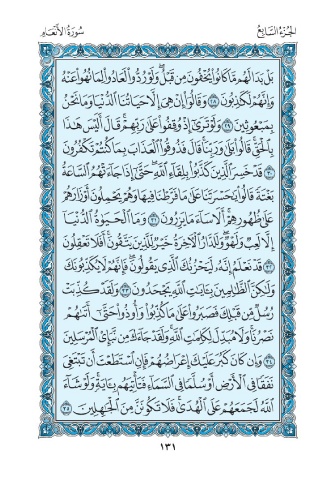 الجُزءُ السَّابِعُ
سُورَةُ الأَنْعَامِ
بَلْ بَدَا لَهُم مَّا كَانُوا۟ يُخْفُونَ مِن قَبْلُ ۖ وَلَوْ رُدُّوا۟ لَعَادُوا۟ لِمَا نُهُوا۟ عَنْهُ
وَإِنَّهُمْ لَكَٰذِبُونَ ٢٨ وَقَالُوٓا۟ إِنْ هِىَ إِلَّا حَيَاتُنَا ٱلدُّنْيَا وَمَا نَحْنُ
بِمَبْعُوثِينَ ٢٩ وَلَوْ تَرَىٰٓ إِذْ وُقِفُوا۟ عَلَىٰ رَبِّهِمْ ۚ قَالَ أَلَيْسَ هَٰذَا
بِٱلْحَقِّ ۚ قَالُوا۟ بَلَىٰ وَرَبِّنَا ۚ قَالَ فَذُوقُوا۟ ٱلْعَذَابَ بِمَا كُنتُمْ تَكْفُرُونَ
٣٠ قَدْ خَسِرَ ٱلَّذِينَ كَذَّبُوا۟ بِلِقَآءِ ٱللَّهِ ۖ حَتَّىٰٓ إِذَا جَآءَتْهُمُ ٱلسَّاعَةُ
بَغْتَةً قَالُوا۟ يَٰحَسْرَتَنَا عَلَىٰ مَا فَرَّطْنَا فِيهَا وَهُمْ يَحْمِلُونَ أَوْزَارَهُمْ
عَلَىٰ ظُهُورِهِمْ ۚ أَلَا سَآءَ مَا يَزِرُونَ ٣١ وَمَا ٱلْحَيَوٰةُ ٱلدُّنْيَآ
إِلَّا لَعِبٌ وَلَهْوٌ ۖ وَلَلدَّارُ ٱلْءَاخِرَةُ خَيْرٌ لِّلَّذِينَ يَتَّقُونَ ۗ أَفَلَا تَعْقِلُونَ
٣٢ قَدْ نَعْلَمُ إِنَّهُۥ لَيَحْزُنُكَ ٱلَّذِى يَقُولُونَ ۖ فَإِنَّهُمْ لَا يُكَذِّبُونَكَ
وَلَٰكِنَّ ٱلظَّٰلِمِينَ بِـَٔايَٰتِ ٱللَّهِ يَجْحَدُونَ ٣٣ وَلَقَدْ كُذِّبَتْ
رُسُلٌ مِّن قَبْلِكَ فَصَبَرُوا۟ عَلَىٰ مَا كُذِّبُوا۟ وَأُوذُوا۟ حَتَّىٰٓ أَتَىٰهُمْ
نَصْرُنَا ۚ وَلَا مُبَدِّلَ لِكَلِمَٰتِ ٱللَّهِ ۚ وَلَقَدْ جَآءَكَ مِن نَّبَإِى۟ ٱلْمُرْسَلِينَ
٣٤ وَإِن كَانَ كَبُرَ عَلَيْكَ إِعْرَاضُهُمْ فَإِنِ ٱسْتَطَعْتَ أَن تَبْتَغِىَ
نَفَقًا فِى ٱلْأَرْضِ أَوْ سُلَّمًا فِى ٱلسَّمَآءِ فَتَأْتِيَهُم بِـَٔايَةٍ ۚ وَلَوْ شَآءَ
ٱللَّهُ لَجَمَعَهُمْ عَلَى ٱلْهُدَىٰ ۚ فَلَا تَكُونَنَّ مِنَ ٱلْجَٰهِلِينَ ٣٥
١٣١